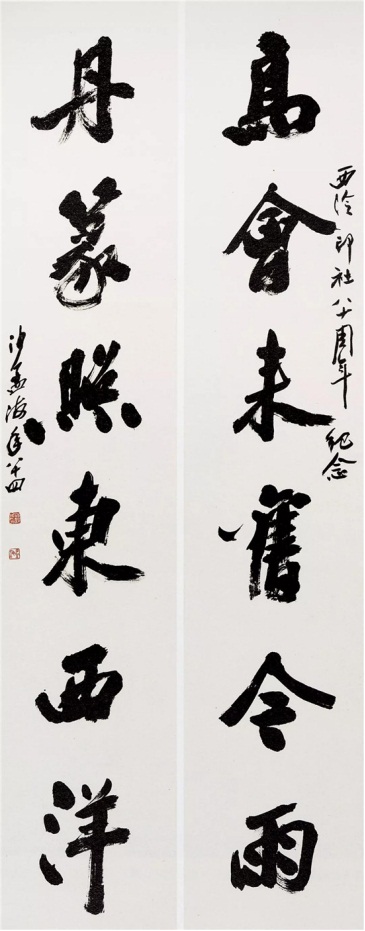 西泠印社八十周年紀念
高會來舊今雨
丹篆照東西洋
沙孟海年八十四